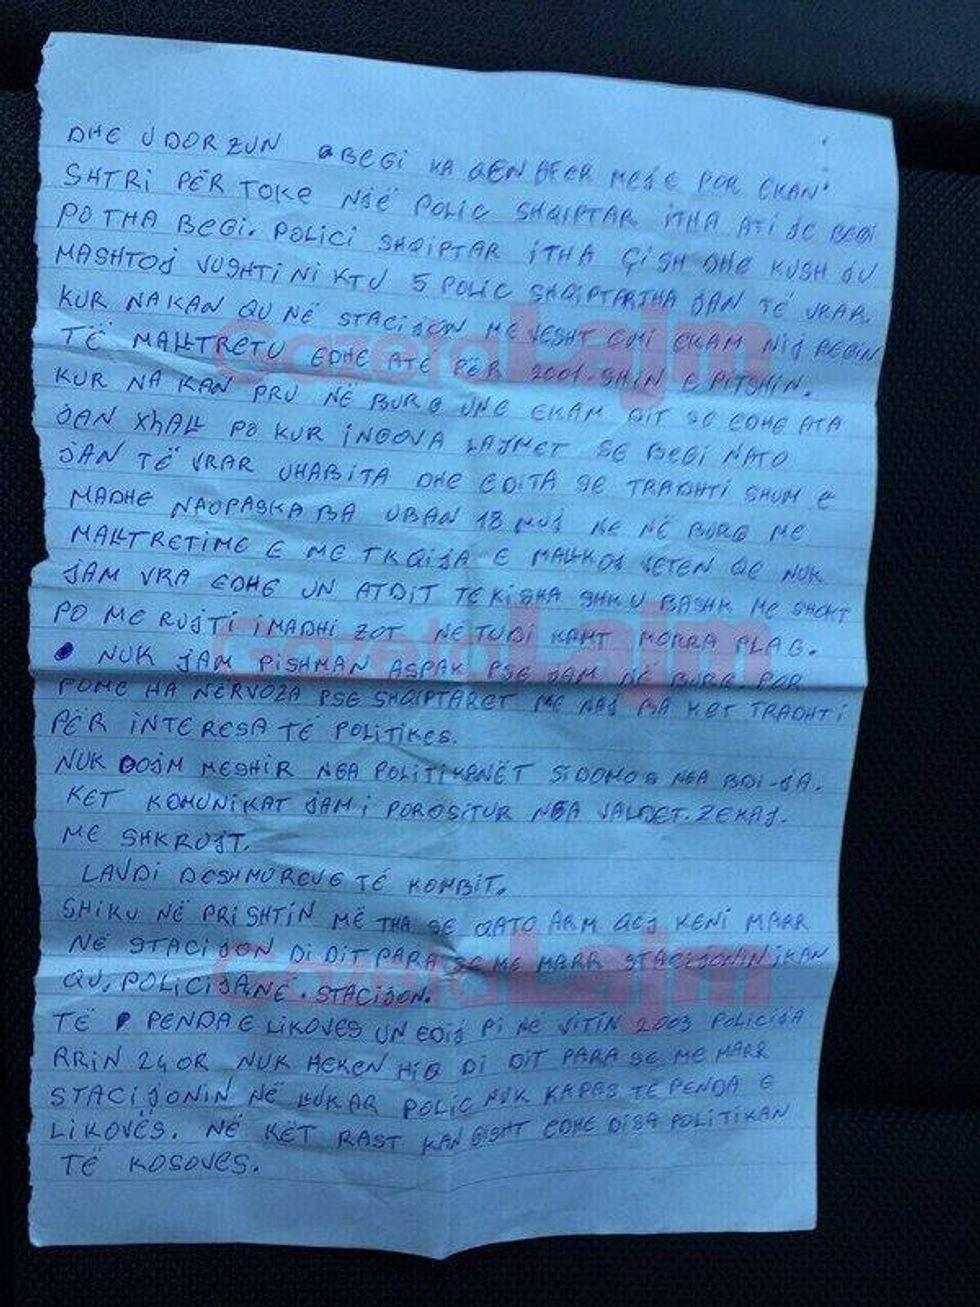 DHE UDORZUN BEGI KA QEN AFER MEJE POR EKAN
SHTRI PËR TOKE NJË POLIC SHQIPTAR ITHA ATI JE BEGI
PO THA BEGI. POLICI SHQIPTAR ITHA ÇISH DHE KUSH JU
MASHTOJ VUSHTI NI KTU 5 POLIC SHQIPTAR THA JAN TË VRAR.
KUR NA KAN QU NË STACIJON ME VESHT EMI EKAM NIJ BEGIN
TË MALLTRETU EDHE ATË PËR 2001-SHIN E PITSHIN.
KUR NA KAN PRU NË BURG UNE EKAM DIT SE EDHE ATA
JAN XHALL PO KUR INGOVA LAJMET SE BEGI NATO
JAN TË VRAR UHABITA DHE EDITA SE TRADHTI SHUM E
MADHE NAOPASKA BA UBAN 18 MUJ NE NË BURG ME
MALLTRETIME E ME TKQIJA E MALLKOJ VETEN QE NUK
JAM VRA EDHE UN ATDIT TE KISHA SHKU BASHK ME SHOKT
PO ME RUJTI IMADHI ZOT NETUDI KAMT MORRA PLAG.
NUK JAM PISHMAN ASPAK PSE JAM NË BURG POR
POME HA NERVOZA PSE SHQIPTARET ME NAJ BA KET TRADHTI
PËR INTERESA TË POLITIKES.
NUK DOJM MESHIR NGA POLITIKANËT SIDOMOS NGA BDI-JA.
KET KOMUNIKAT JAM I POROSITUR NGA VALDET. ZEKAJ.
ME SHKRUJT.
LAVDI DESHMOREVE TË KOMBIT.
SHIKU NË PRISHTIN MË THA SE QATO ARM QEJ KENI MARR
NE STACIJON DI DIT PARA SE ME MARR STACIJONIN IKAN
QU, POLICIJANË. STACIJON.
TË PENDA E LIKOVES UN EDIJ PI NE VITIN 2003 POLICIJA
RRIN 24 OR NUK HEKEN HIQ DI DIT PARA SE ME MARR
STACIJONIN NË LUKAR POLIC NUK KAPAS TE PENDA E
LIKOVËS. NË KËT RAST KAN GISHT EDHE DISA POLITIKAN
TË KOSOVES.
Gazeta Lajm
Gazeta Lajm
Gazeta Lajm